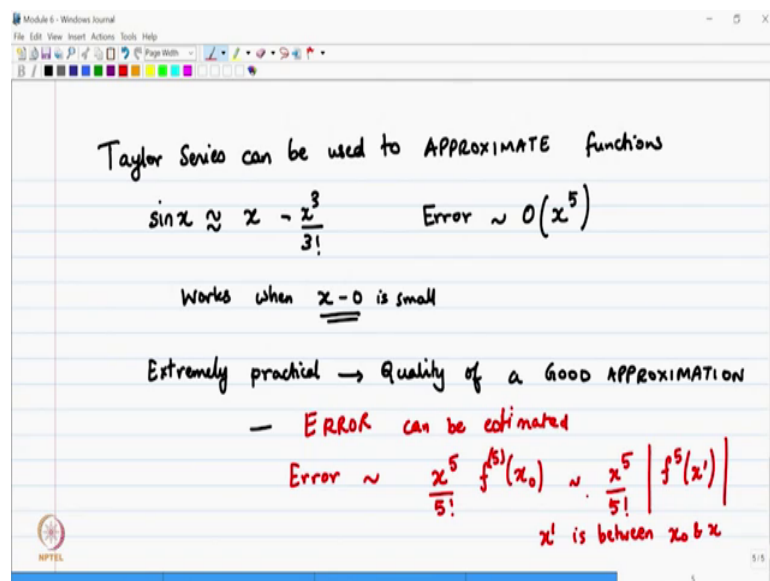 Module 6 - Windows Journal
File Edit View Insert Actions Tools Help
Page Width
B I
Taylor Series can be used to APPROXIMATE functions
sin x ≈ x - x³/3! Error ~ O(x⁵)
Works when x - 0 is small
Extremely practical → Quality of a GOOD APPROXIMATION
— ERROR can be estimated
Error ~ x⁵/5! f⁽⁵⁾(x₀) ~ x⁵/5! |f⁵(x')|
x' is between x₀ & x
NPTEL
5/5